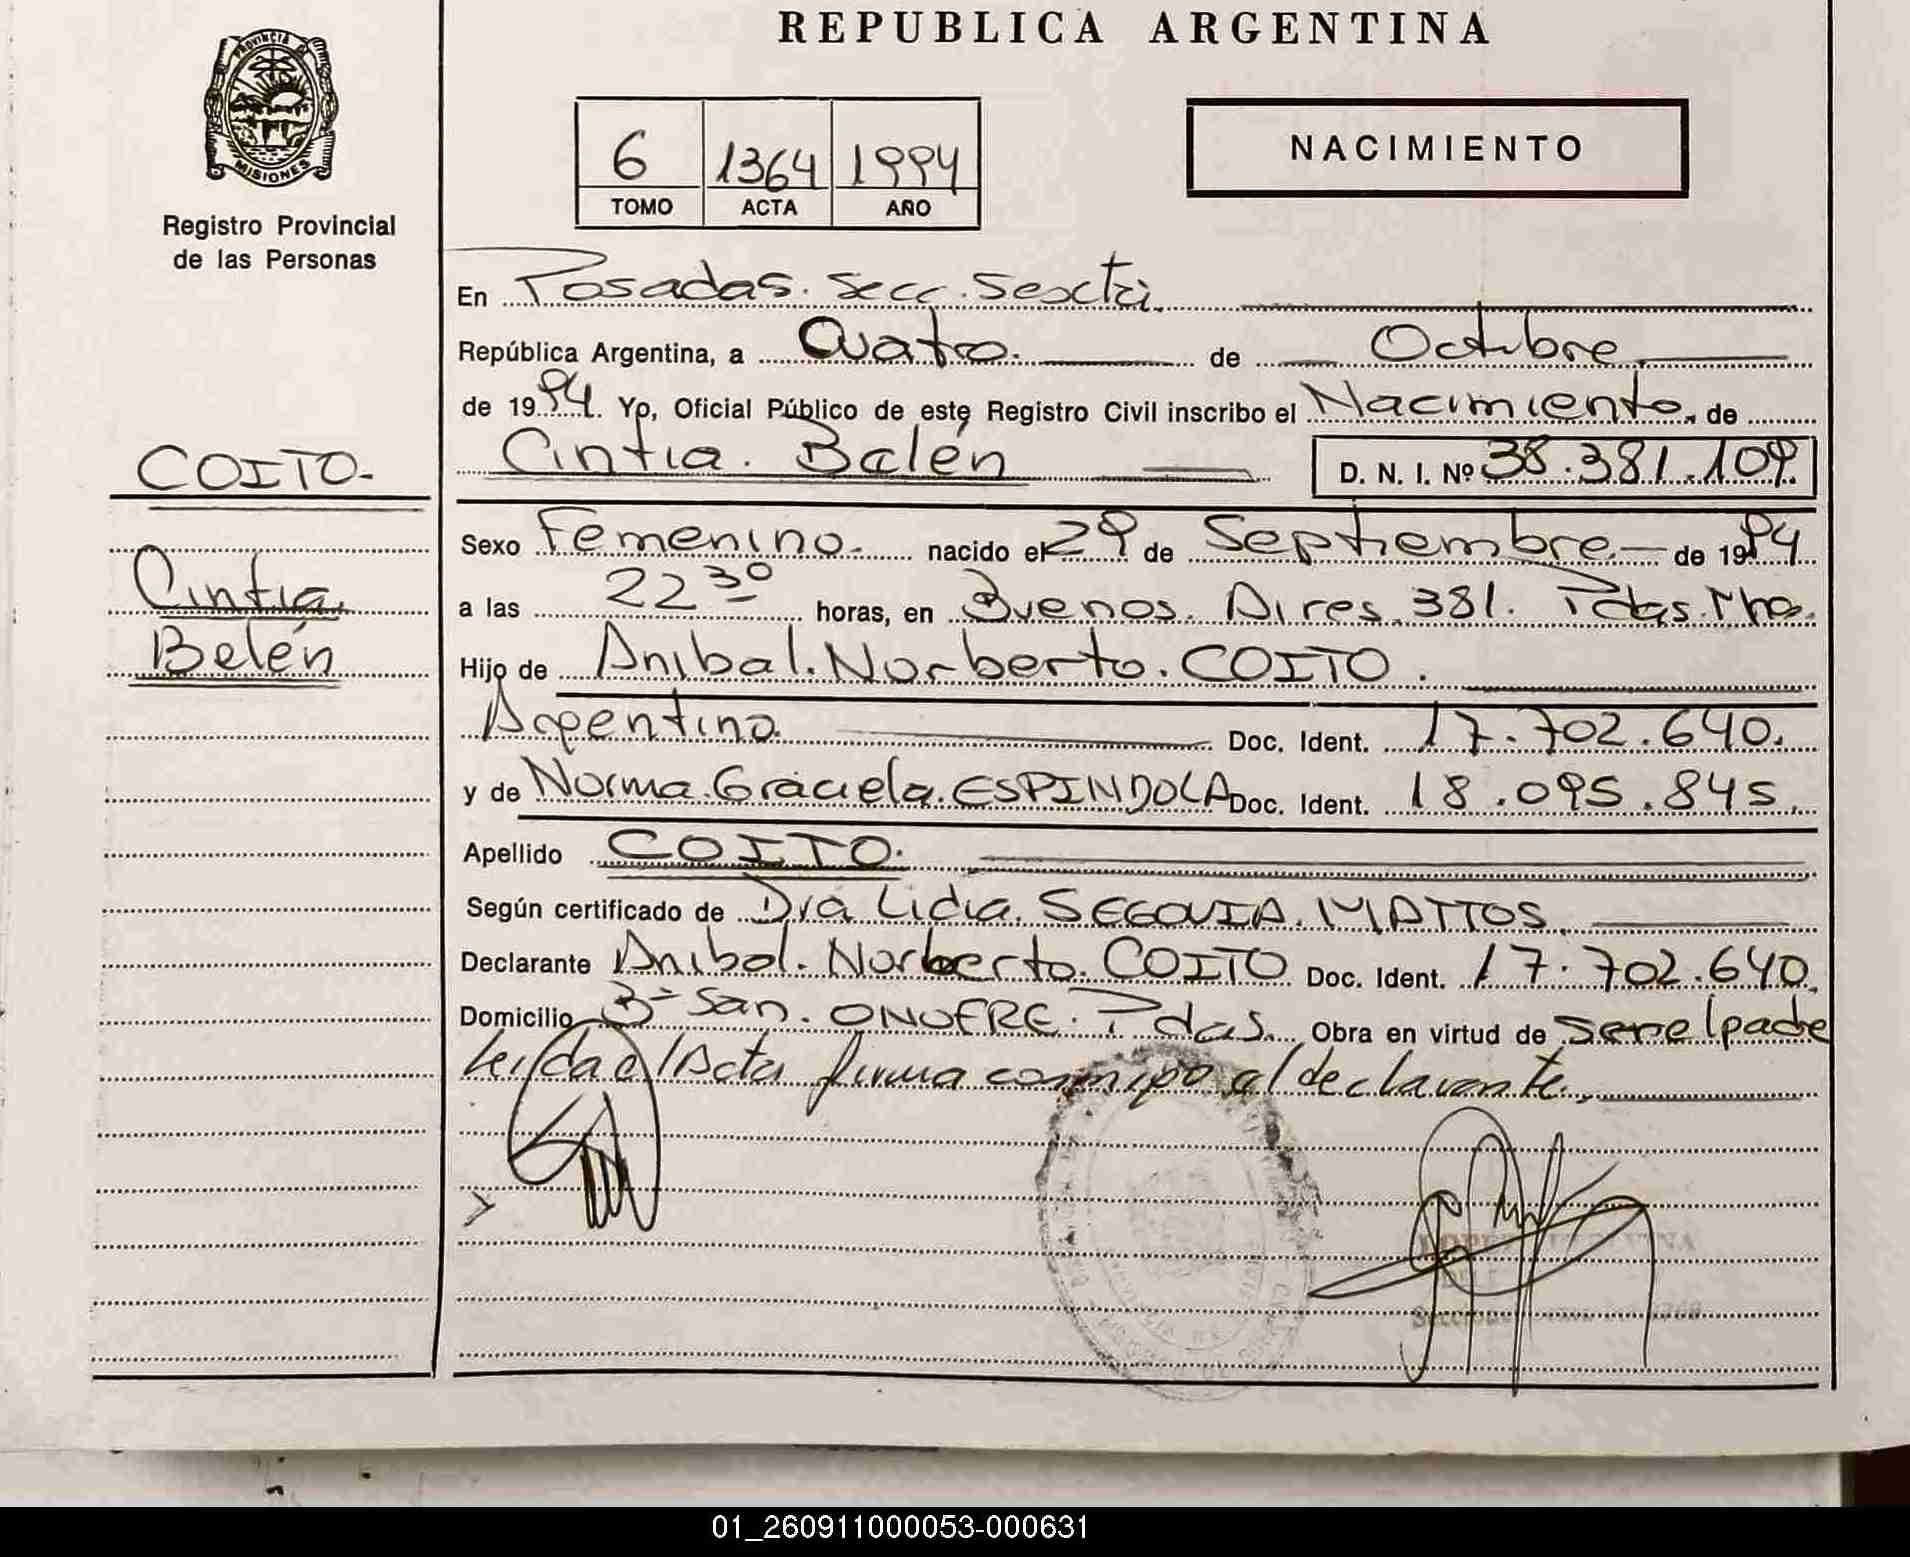 REPUBLICA ARGENTINA
PROVINCIA DE MISIONES
Registro Provincial
de las Personas
6 1364 1994
TOMO ACTA AÑO
NACIMIENTO
En Posadas. Secc. Sexta.
República Argentina, a Cuatro. de Octubre
de 1994. Yo, Oficial Público de este Registro Civil inscribo el Nacimiento, de
Cintia. Belén D. N. I. Nº 38.381.109
COITO-
Cintia
Belén
Sexo Femenino. nacido el 29 de Septiembre. de 1994
a las 22 30 horas, en Buenos. Aires. 381. Pdas. Mnes.
Hijo de Anibal. Norberto. COITO.
Argentino Doc. Ident. 17.702.640.
y de Norma. Graciela. ESPINDOLA Doc. Ident. 18.095.845.
Apellido COITO.
Según certificado de Dra Lidia. SEGOVIA. MATTOS
Declarante Anibal. Norberto. COITO Doc. Ident. 17.702.640
Domicilio Bº San. ONOFRE. Pdas. Obra en virtud de ser el padre
Leida el Acta firma conmigo el declarante.
01_260911000053-000631